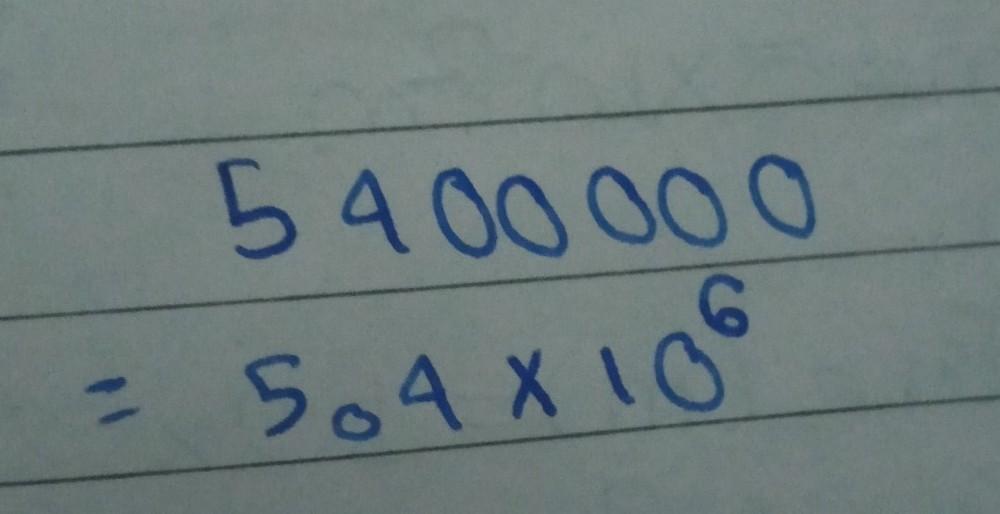 5400000
= 5.4 x 10⁶